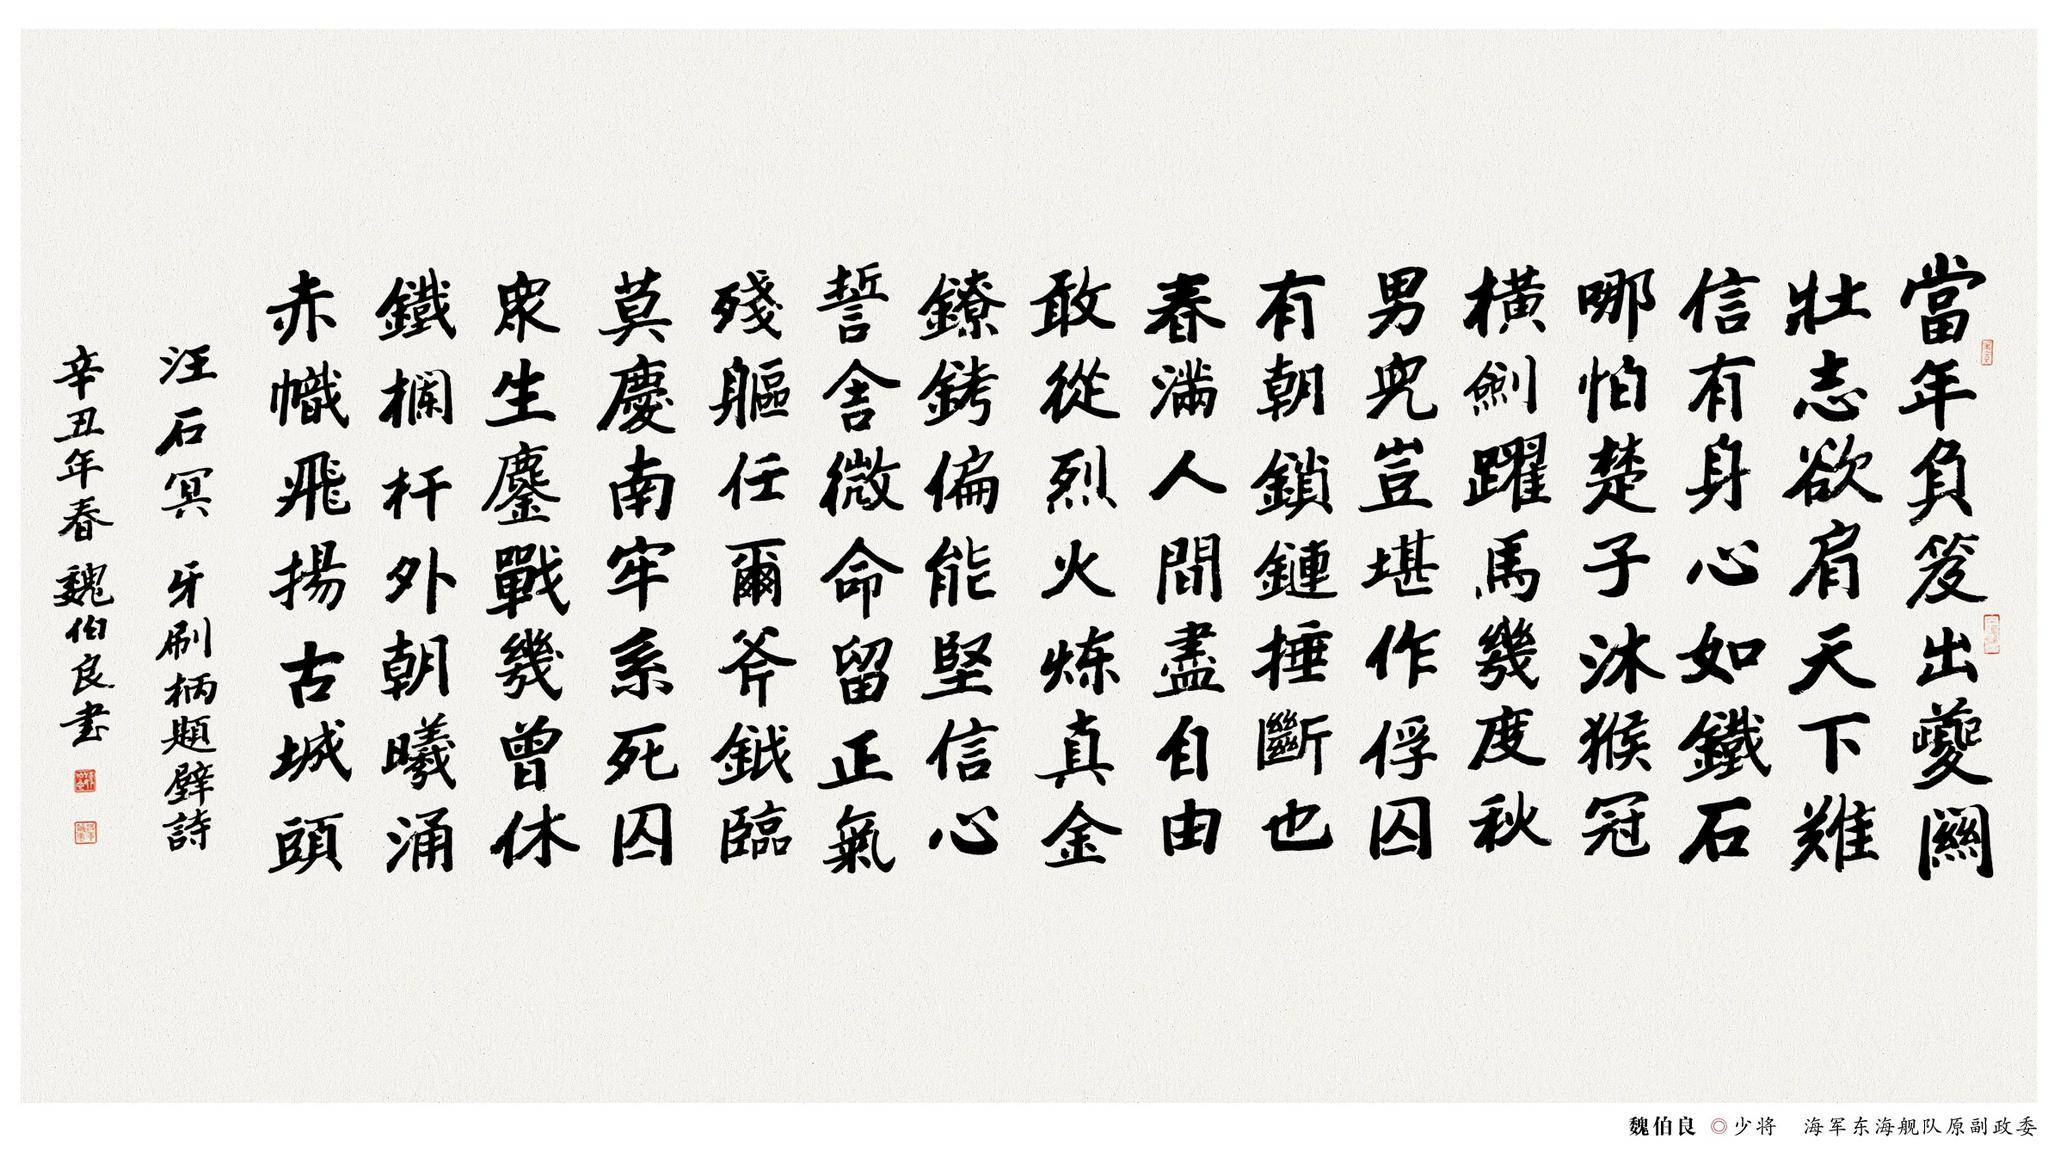 當年負笈出夔關
壯志欲肩天下難
信有身心如鐵石
哪怕楚子沐猴冠
橫劍躍馬幾度秋
男兒豈堪作俘囚
有朝鎖鏈捶斷也
春滿人間盡自由
敢從烈火炼真金
鐐銬偏能堅信心
誓舍微命留正氣
殘軀任爾斧鉞臨
莫慶南牢系死囚
眾生鏖戰幾曾休
鐵欄杆外朝曦涌
赤幟飛揚古城頭
汪石冥 牙刷柄題壁詩
辛丑年春 魏伯良书
魏伯良 ◎少将 海军东海舰队原副政委